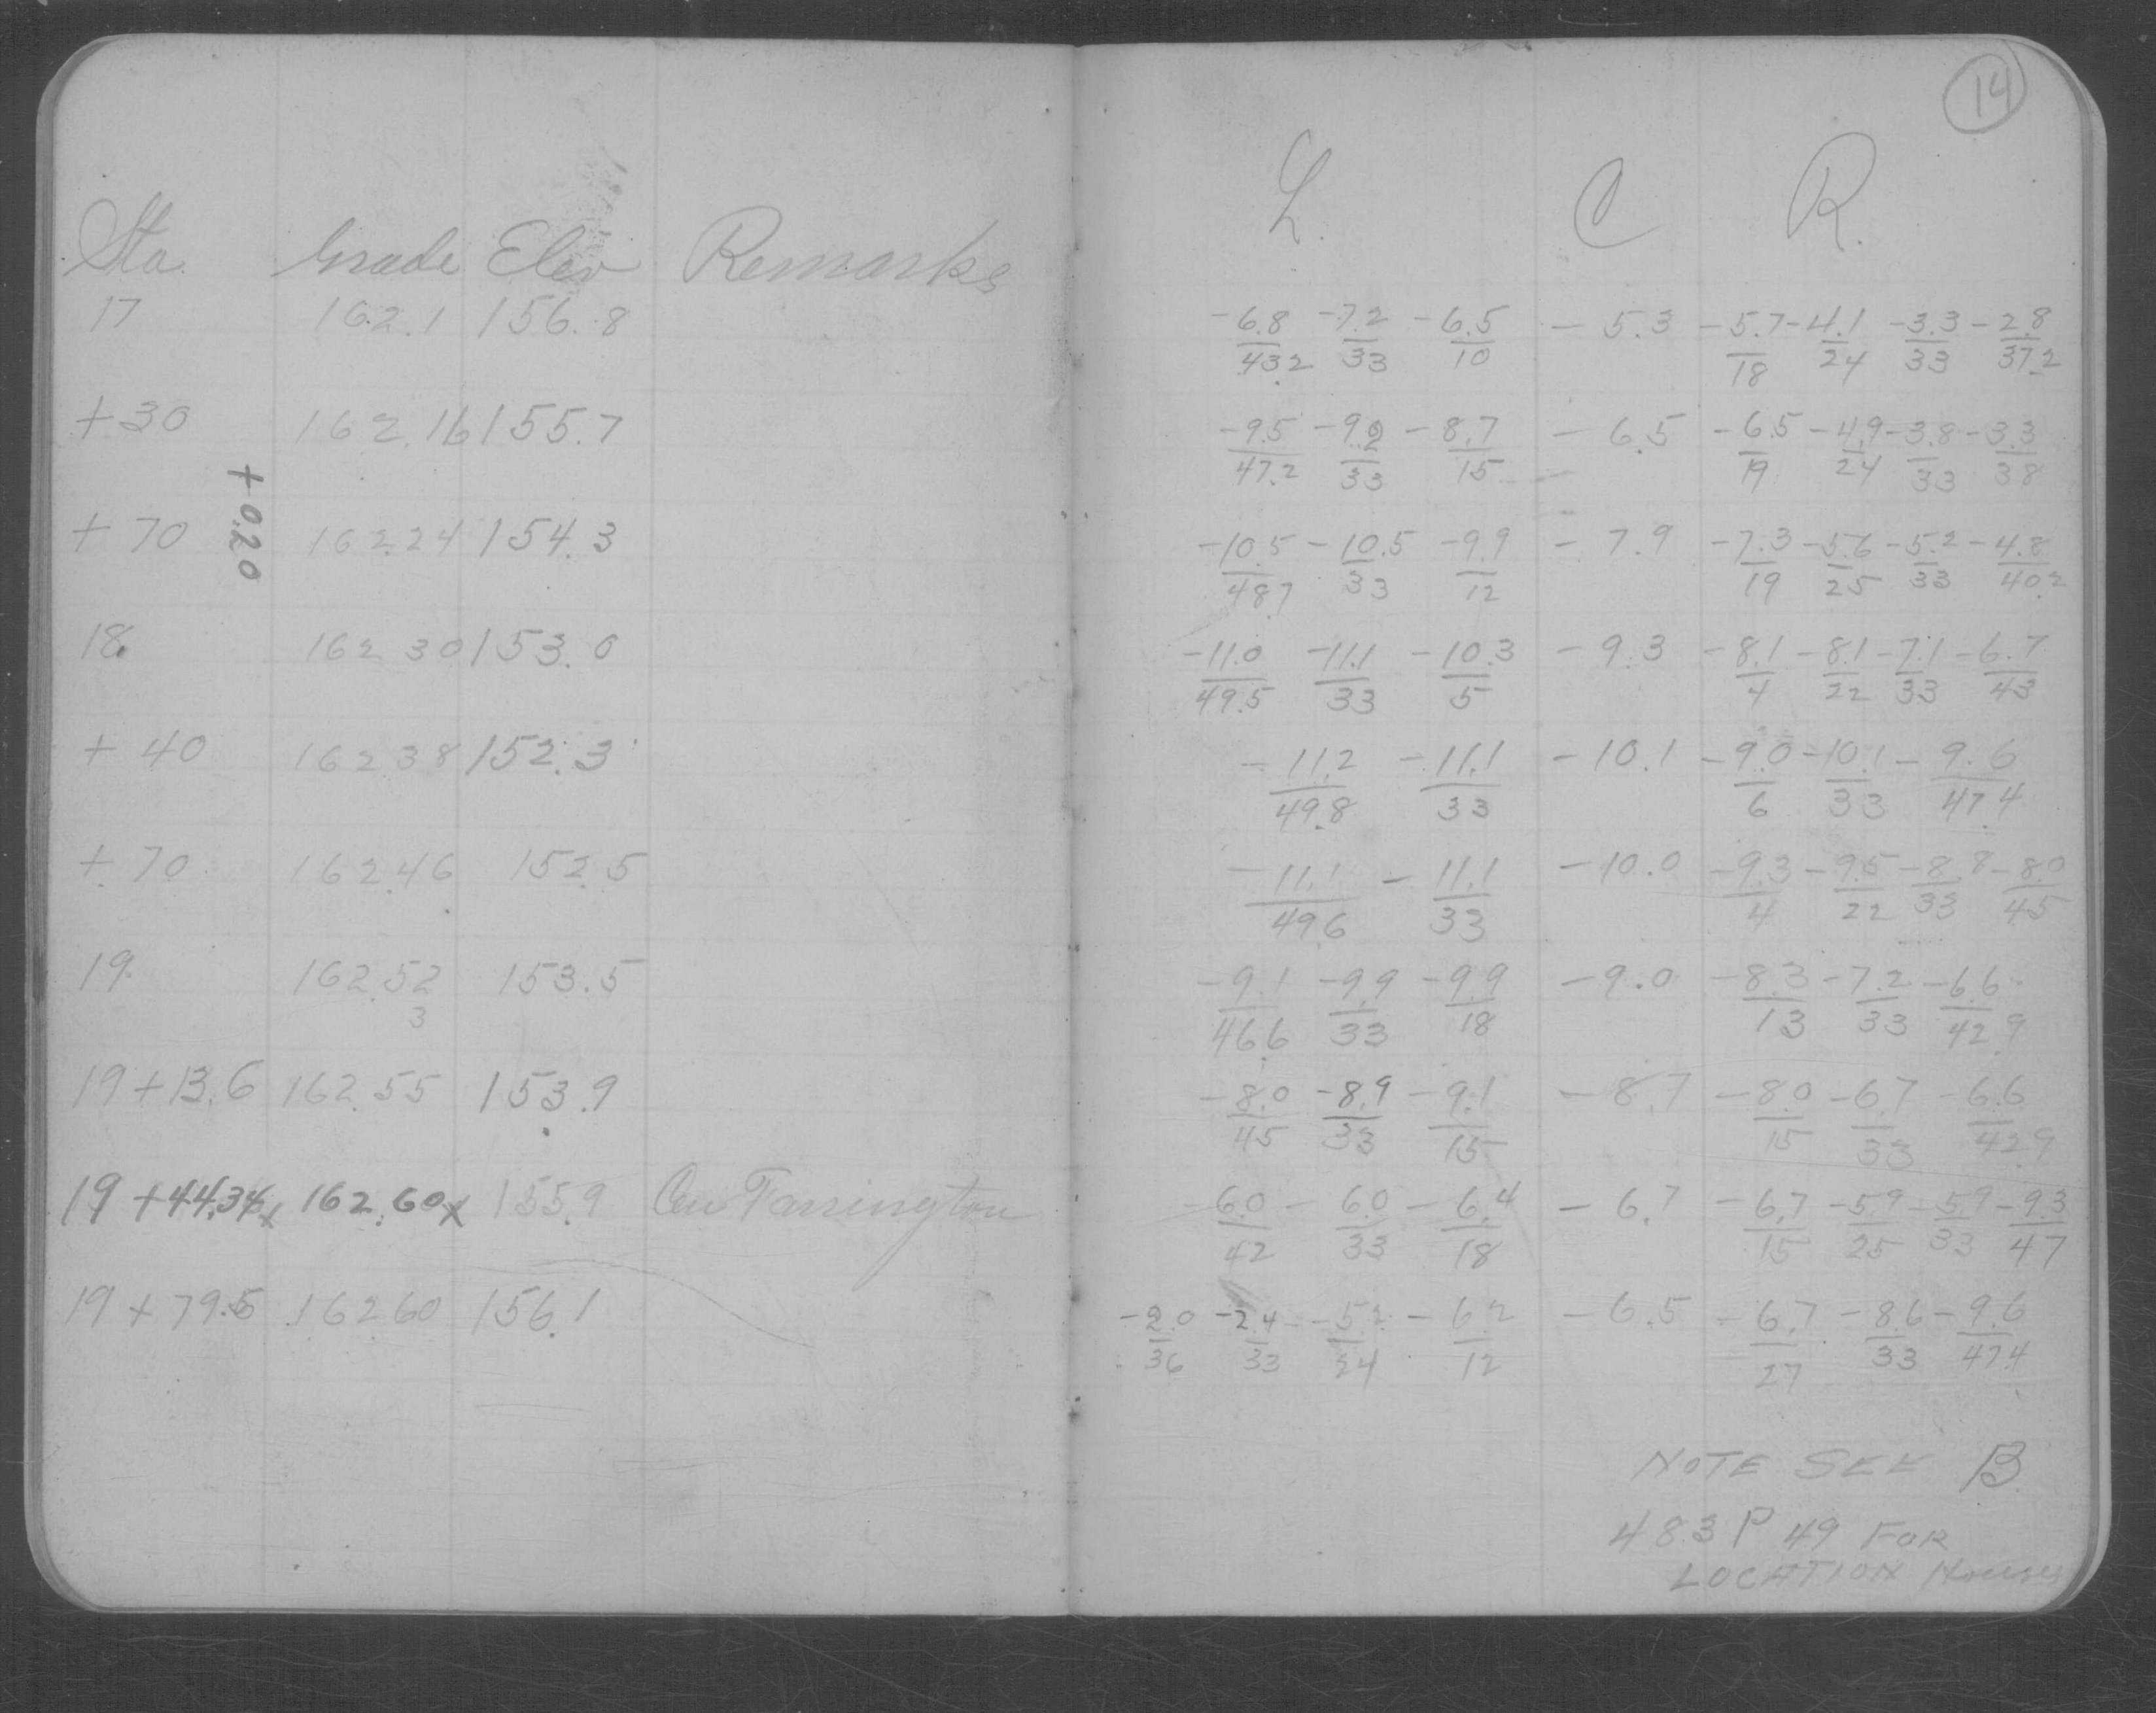 14
Sta. Grade Elev Remarks L. C R.
17 162.1 156.8 -6.8/43.2 -7.2/33 -6.5/10 -5.3 -5.7/18 -4.1/24 -3.3/33 -2.8/37.2
+30 162.16 155.7 -9.5/47.2 -9.2/33 -8.7/15 -6.5 -6.5/19 -4.9/24 -3.8/33 -3.3/38
+0.20
+70 162.24 154.3 -10.5/48.7 -10.5/33 -9.9/12 -7.9 -7.3/19 -5.6/25 -5.2/33 -4.8/40.2
18. 162.30 153.0 -11.0/49.5 -11.1/33 -10.3/5 -9.3 -8.1/4 -8.1/22 -7.1/33 -6.7/43
+40 162.38 152.3 -11.2/49.8 -11.1/33 -10.1 -9.0/6 -10.1/33 -9.6/47.4
+70 162.46 152.5 -11.1/49.6 -11.1/33 -10.0 -9.3/4 -9.5/22 -8.8/33 -8.0/45
19. 162.52 153.5 -9.1/46.6 -9.9/33 -9.9/18 -9.0 -8.3/13 -7.2/33 -6.6/42.9
3
19+13.6 162.55 153.9 -8.0/45 -8.9/33 -9.1/15 -8.7 -8.0/15 -6.7/33 -6.6/42.9
19+44.34x 162.60x 155.9 Cen Farrington -6.0/42 -6.0/33 -6.4/18 -6.7 -6.7/15 -5.9/25 -5.9/33 -9.3/47
19+79.5 162.60 156.1 -2.0/36 -2.4/33 -5.2/24 -6.2/12 -6.5 -6.7/27 -8.6/33 -9.6/47.4
NOTE SEE B
483 P 49 FOR
LOCATION Houses